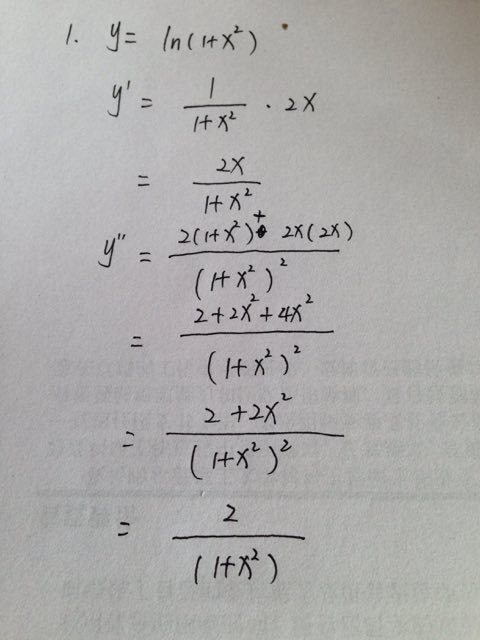 1. y = ln(1+x²)
y' = 1/(1+x²) · 2x
= 2x/(1+x²)
y'' = (2(1+x²) + 2x(2x))/(1+x²)²
= (2+2x²+4x²)/(1+x²)²
= (2+2x²)/(1+x²)²
= 2/(1+x²)